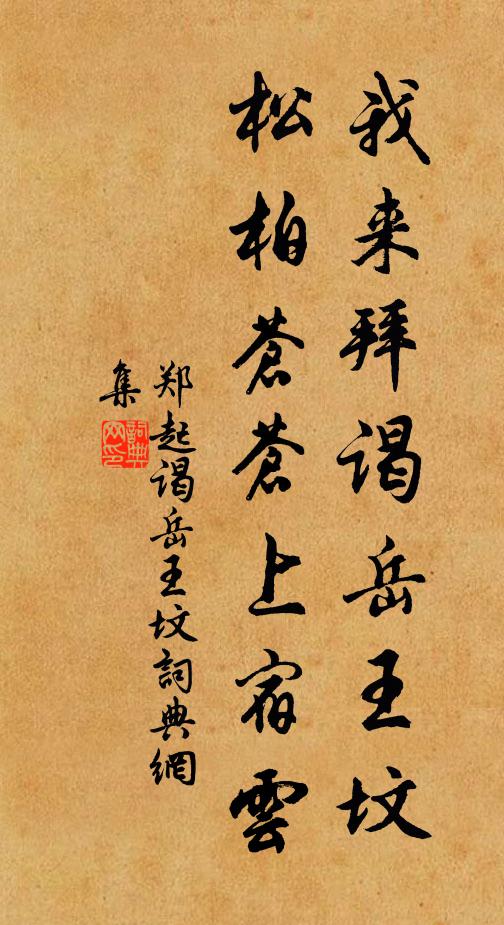 我来拜谒岳王坟
松柏苍苍上宿雲
郑起谒岳王坟詞典網
集
詞典網印